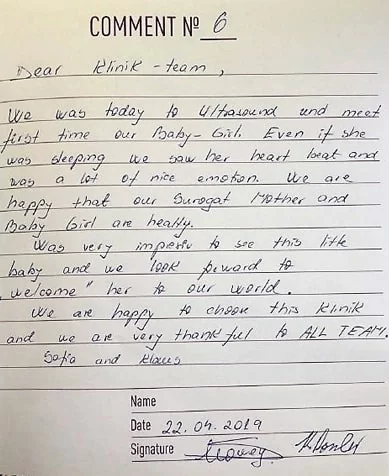 COMMENT № 6
Dear Klinik-team,
We was today to Ultrasound und meet
first time our Baby-Girl. Even if she
was sleeping we saw her heart beat and
was a lot of nice emotion. We are
happy that our Surogat Mother and
Baby Girl are healfy.
Was very impresiv to see this little
baby and we look forward to
„welcome" her to our world.
We are happy to choose this Klinik
and we are very thankful to ALL TEAM.
Sofia and Klaus
Name
Date 22.04.2019
Signature